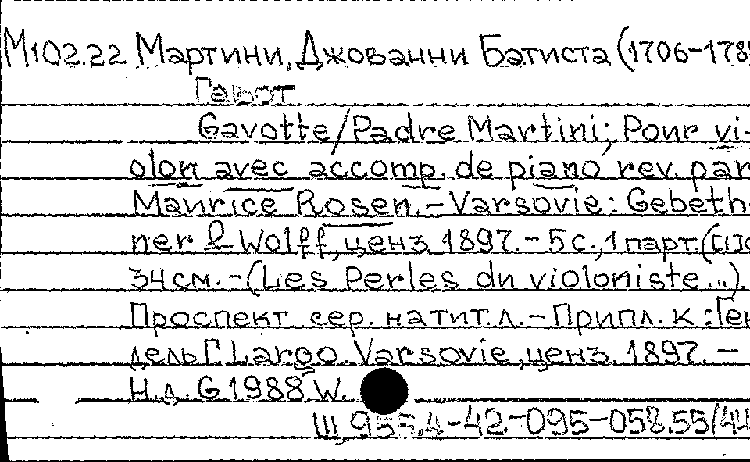 М102.22 Мартини, Джованни Батиста (1706-178
Гавот
Gavotte/Padre Martini; Pour vi-
olon avec accomp. de piano rev. par
Maurice Rosen.-Varsovie: Gebeth-
ner & Wolff, ценз. 1897.-5с., 1 парт.
34см.-(Les Perles du violoniste...).
Проспект сер. на тит. л.-Прилл. к: Ген
дель Г. Largo. Varsovie, ценз. 1897.-
Н.д. G 1988 W.
42-095-058.55/44